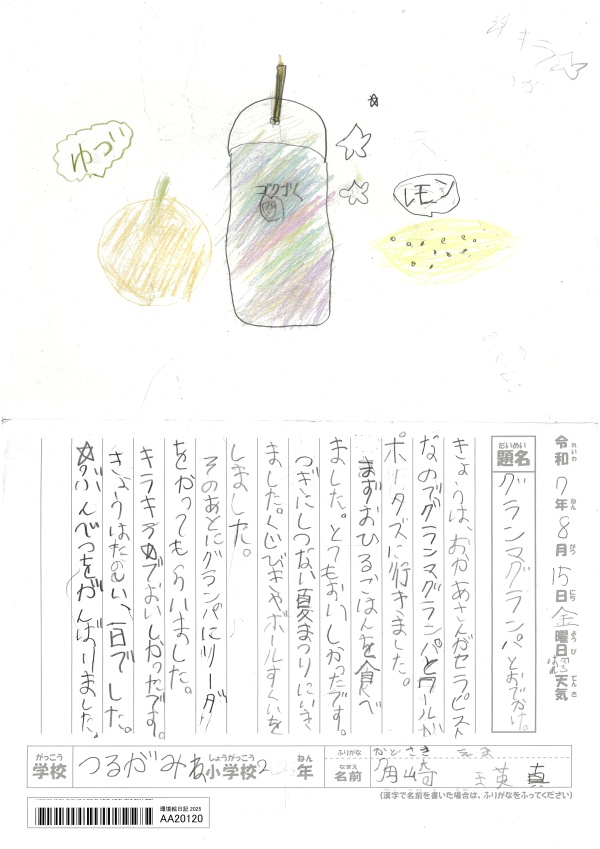 キラ
ゆづ
ゴクゴく
レモン
令和7年8月15日金曜日 天気
れいわ ねん がつ にち ようび てんき
だいめい
題名 グランマグランパとおでかけ。
きょうは、おかあさんがセラピスト
なのでグランマグランパとワールド
ポータズに行きました。
まずおひるごはんを食べ
ました。とてもおいしかったです。
つぎにしつない夏まつりにいき
ました。くじびきやボールすくいを
しました。
そのあとにグランパにソーダ
をかってもらいました。
キラキラでおいしかったです。
きょうはたのしい、一日でした。
☆ぶんべつをがんばりました。
がっこう しょうがっこう ねん
学校 つるがみね小学校2年
ふりがな かどさき えま
なまえ
名前 角崎 英真
(漢字で名前を書いた場合は、ふりがなをふってください)
環境絵日記 2025
AA20120